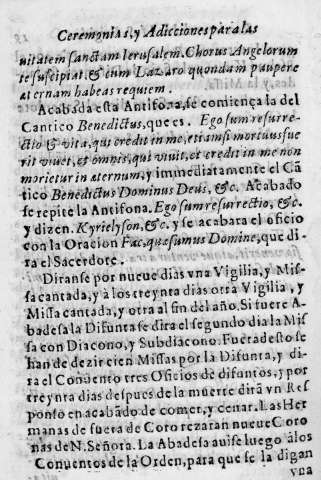 Ceremonias, y Adicciones para las
uitatem sanctam Ierusalem. Chorus Angelorum
te suscipiat, & cum Lazaro quondam paupere
æternam habeas requiem.
Acabada esta Antifona, se comiença la del
Cantico Benedictus, que es. Ego sum resurre-
ctio & vita, qui credit in me, etiamsi mortuus fue
rit viuet, et omnis, qui viuit, et credit in me non
morietur in æternum, y immediatamente el Cã
tico Benedictus Dominus Deus, &c. Acabado
se repite la Antifona. Ego sum resurrectio, &c.
y dizen. Kyrielyson, &c. y se acabara el oficio
con la Oracion Fac, quæsumus Domine, que di-
ra el Sacerdote.
Diranse por nueue dias vna Vigilia, y Mis-
sa cantada, y à los treynta dias otra Vigilia, y
Missa cantada, y otra al fin del año. Si fuere A-
badesa la Difunta se dira el segundo dia la Mis
sa con Diacono, y Subdiacono. Fuera desto se
han de dezir cien Missas por la Difunta, y di-
ra el Conuento tres Oficios de difuntos, y por
treynta dias despues de la muerte dirã vn Res
ponso en acabãdo de comer, y cenar. Las Her
manas de fuera de Coro rezaran nueue Coro
nas de N. Señora. La Abadesa auise luego à los
Conuentos de la Orden, para que se la digan
vna